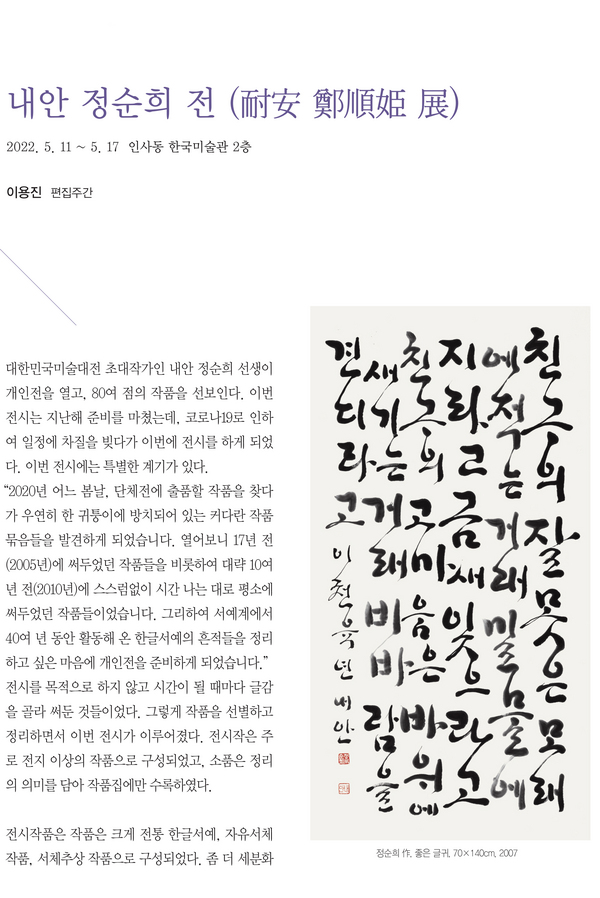 내안 정순희 전 (耐安 鄭順姬 展)
2022. 5. 11 ~ 5. 17 인사동 한국미술관 2층
이용진 편집주간
대한민국미술대전 초대작가인 내안 정순희 선생이
개인전을 열고, 80여 점의 작품을 선보인다. 이번
전시는 지난해 준비를 마쳤는데, 코로나19로 인하
여 일정에 차질을 빚다가 이번에 전시를 하게 되었
다. 이번 전시에는 특별한 계기가 있다.
“2020년 어느 봄날, 단체전에 출품할 작품을 찾다
가 우연히 한 귀퉁이에 방치되어 있는 커다란 작품
묶음들을 발견하게 되었습니다. 열어보니 17년 전
(2005년)에 써두었던 작품들을 비롯하여 대략 10여
년 전(2010년)에 스스럼없이 시간 나는 대로 평소에
써두었던 작품들이었습니다. 그리하여 서예계에서
40여 년 동안 활동해 온 한글서예의 흔적들을 정리
하고 싶은 마음에 개인전을 준비하게 되었습니다.”
전시를 목적으로 하지 않고 시간이 될 때마다 글감
을 골라 써둔 것들이었다. 그렇게 작품을 선별하고
정리하면서 이번 전시가 이루어졌다. 전시작은 주
로 전지 이상의 작품으로 구성되었고, 소품은 정리
의 의미를 담아 작품집에만 수록하였다.
전시작품은 작품은 크게 전통 한글서예, 자유서체
작품, 서체추상 작품으로 구성되었다. 좀 더 세분화
친구의 잘못은 모래
에 적는 거래 밀물에
지라고 금새 잊으라고
친구의 고마움은 바위에
새기는 거래 비바람을
견디라고 이천육년 내안
정순희 作, 좋은 글귀, 70×140cm, 2007